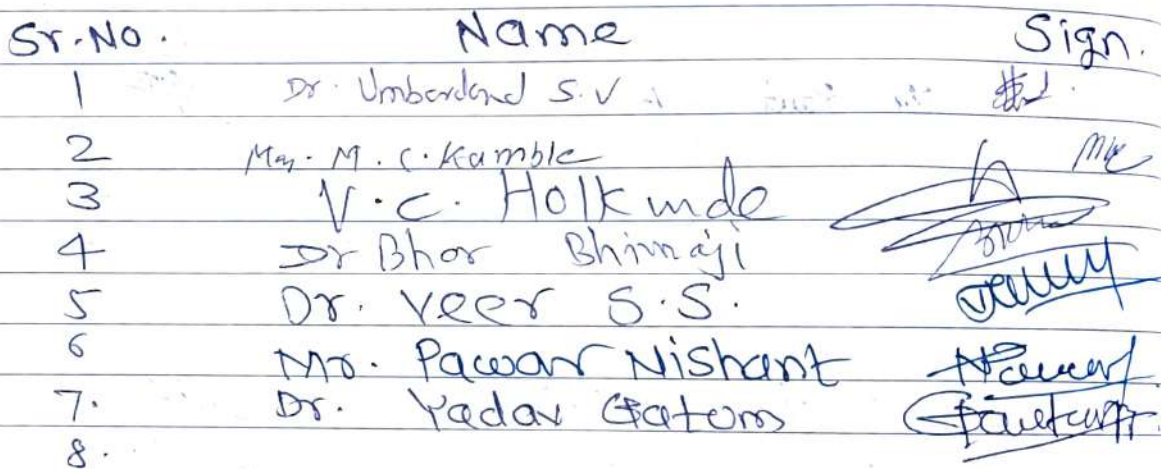 Sr.No. Name Sign.
1 Dr. Umbardand S.V
2 M. C. Kamble
3 V.C. Holkunde
4 Dr Bhor Bhimaji
5 Dr. Veer S.S.
6 Mr. Pawar Nishant
7. Dr. Yadav Gatom
8.